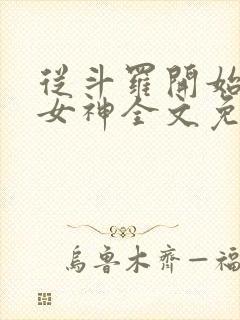 從斗羅開始
女神全文免
烏魯木齊—福